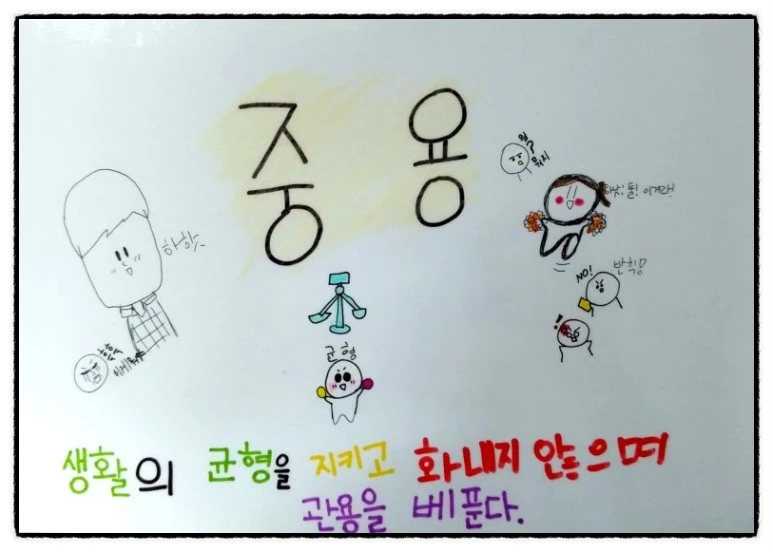 중용
왜?
뭐지
하핫
이겨라!
반칙!
NO!
균형
생활의 균형을 지키고 화내지 않으며
관용을 베푼다.